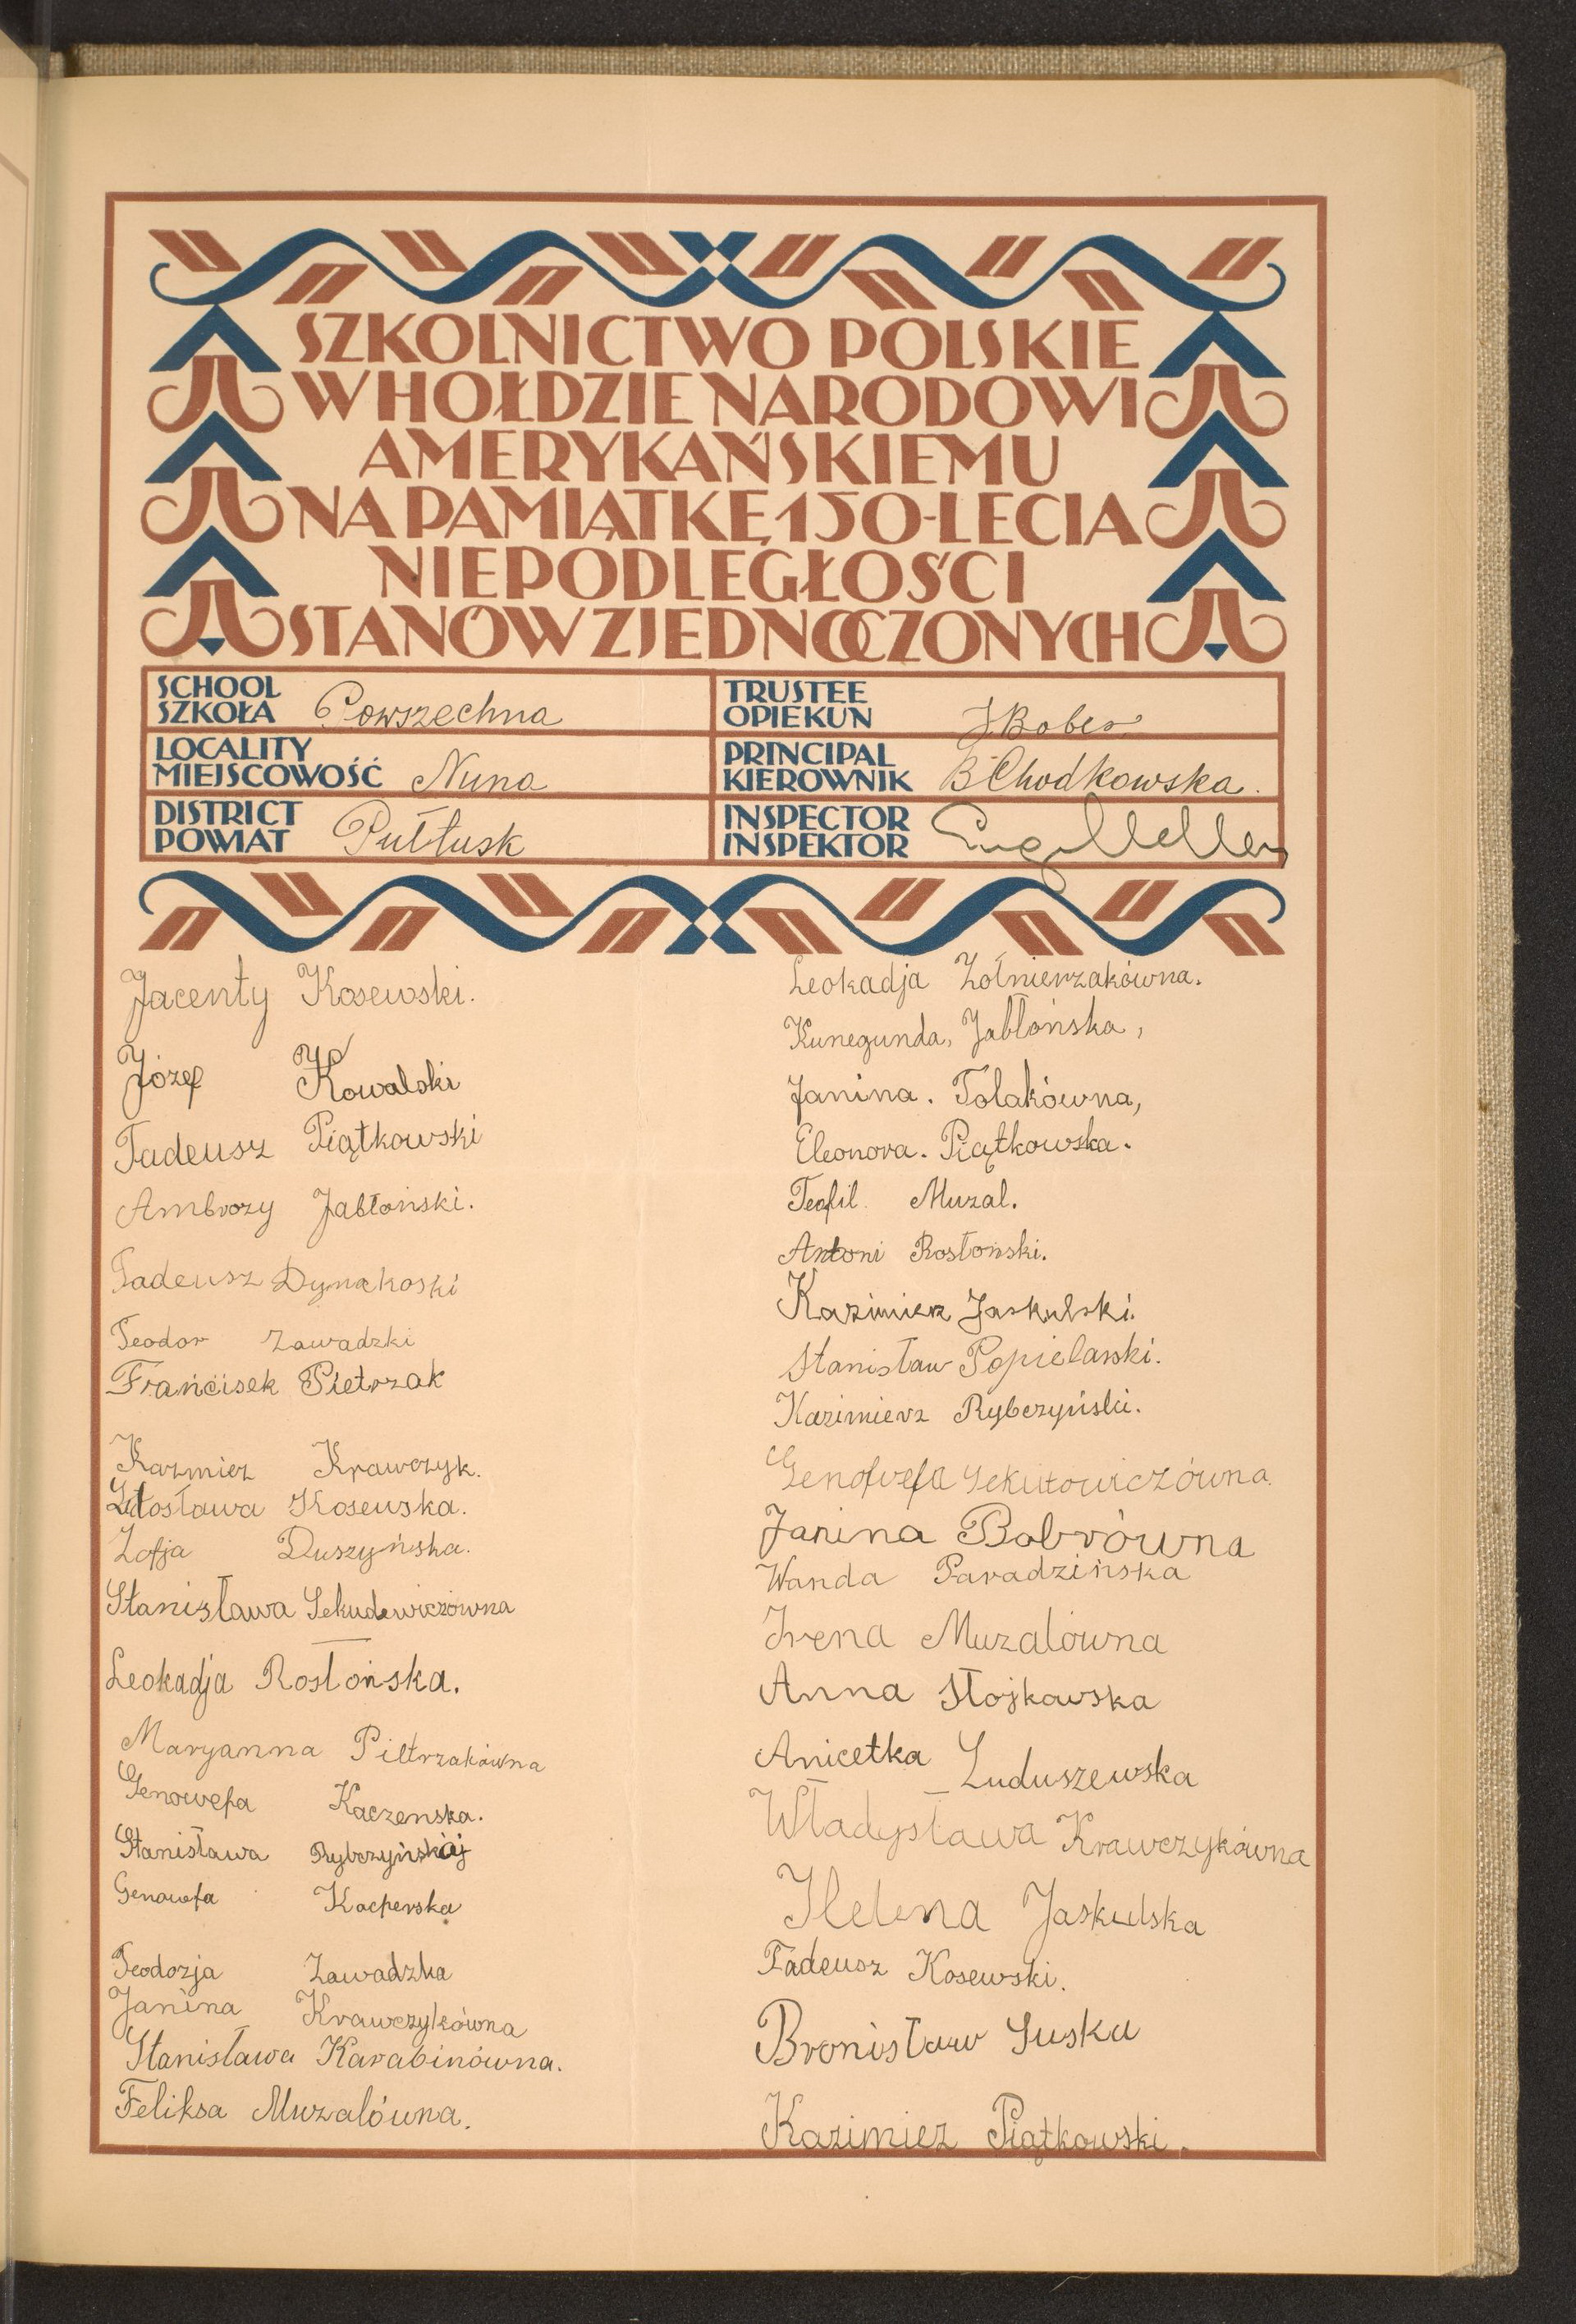 SZKOLNICTWO POLSKIE
W HOŁDZIE NARODOWI
AMERYKAŃSKIEMU
NA PAMIĄTKĘ 150-LECIA
NIEPODLEGŁOŚCI
STANÓW ZJEDNOCZONYCH
SCHOOL
SZKOŁA Powszechna
LOCALITY
MIEJSCOWOŚĆ Nuna
DISTRICT
POWIAT Pułtusk
TRUSTEE
OPIEKUN J. Bober
PRINCIPAL
KIEROWNIK B Chodkowska.
INSPECTOR
INSPEKTOR
Jacenty Kosewski.
Józef Kowalski
Tadeusz Piątkowski
Ambrozy Jabłoński.
Tadeusz Dymakoski
Teodor Zawadzki
Francisek Pietrzak
Kazmiez Krawczyk.
Kosewska.
Zofja Duszyńska.
Stanisława Sekudewiczówna
Leokadja Rosłońska.
Maryanna Pietrzakówna
Genowefa Kaczenska.
Stanisława
Genowfa Kacperska
Teodozja Zawadzka
Janina Krawczykówna
Stanisława Karabinówna.
Feliksa Muzalówna.
Leokadja Żołnierzakówna.
Kunegunda, Jabłońska,
Janina. Tolakówna,
Eleonora. Piątkowska.
Teofil Muzal.
Antoni Rosłoński.
Kazimierz Jaskulski.
Stanisław Popielarski.
Kazimierz Rybczyński.
Genofwefa Sekutowiczówna
Janina Bobrówna
Wanda Paradzińska
Irena Muzalówna
Anna Stojkowska
Anicetka Luduszewska
Władysława Krawczykówna
Helena Jaskulska
Tadeusz Kosewski.
Bronisław Suska
Kazimiez Piątkowski.